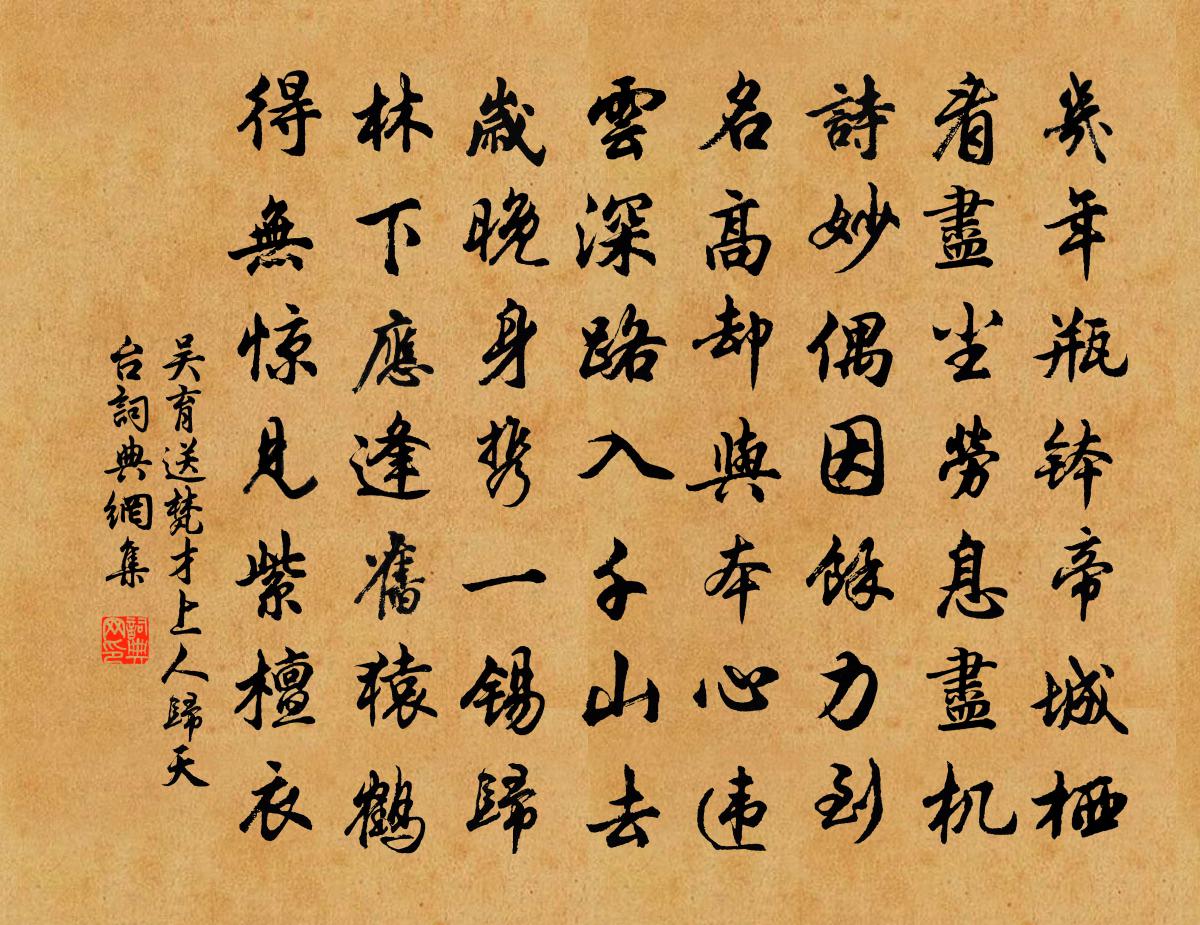 幾年瓶鉢帝城栖
看盡尘勞息盡机
詩妙偶因餘力到
名高却與本心违
雲深路入千山去
歲晚身携一錫歸
林下應逢舊猿鶴
得無惊見紫檀衣
吴育送梵才上人歸天
台詞典網集
詞典网印